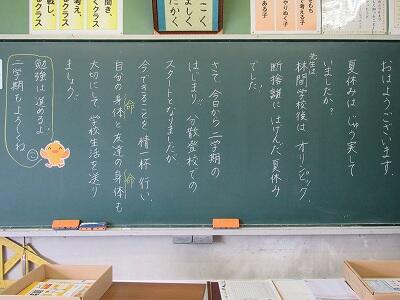 おはようございます。
夏休みは じゅう実して
いましたか?
先生は
林間学校後は オリンピック、
断捨離に はげんだ夏休み
でした。
さて、今日から 二学期の
はじまり。分散登校での
スタートとなりましたが
今できることを 精一杯 行い、
自分の身体と友達の身体も
命
命
大切にして 学校生活を送り
ましょう。
勉強は 進めるよ!
二学期も よろしくね
こく
よしく
たかく
クラス
くクラス